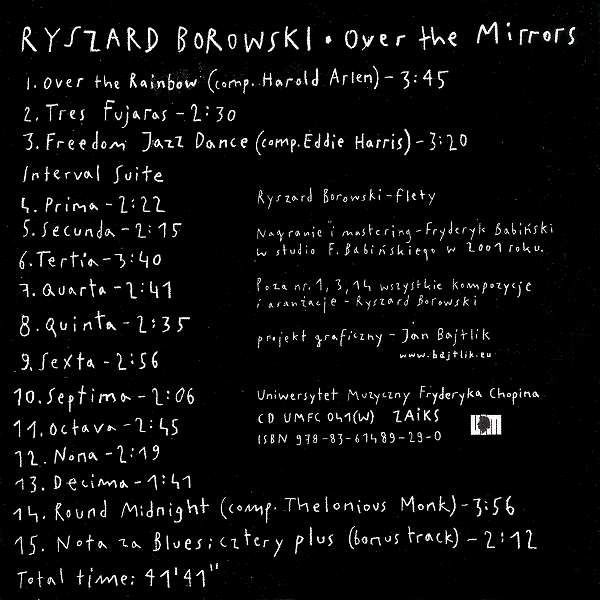 RYSZARD BOROWSKI • Over the Mirrors
1. Over the Rainbow (comp. Harold Arlen) - 3:45
2. Tres Fujaras - 2:30
3. Freedom Jazz Dance (comp. Eddie Harris) - 3:20
Interval Suite
4. Prima - 2:22
5. Secunda - 2:15
6. Tertia - 3:40
7. Quarta - 2:41
8. Quinta - 2:35
9. Sexta - 2:56
10. Septima - 2:06
11. Octava - 2:45
12. Nona - 2:19
13. Decima - 1:41
14. Round Midnight (comp. Thelonious Monk) - 3:56
15. Nota za Blues: cztery plus (bonus track) - 2:12
Total time: 41'41"
Ryszard Borowski - flety
Nagranie i mastering - Fryderyk Babiński
w studio F. Babińskiego w 2001 roku.
Poza nr. 1, 3, 14 wszystkie kompozycje
i aranżacje - Ryszard Borowski
projekt graficzny - Jan Bajtlik
www.bajtlik.eu
Uniwersytet Muzyczny Fryderyka Chopina
CD UMFC 041(W) ZAiKS
ISBN 978-83-61489-29-0